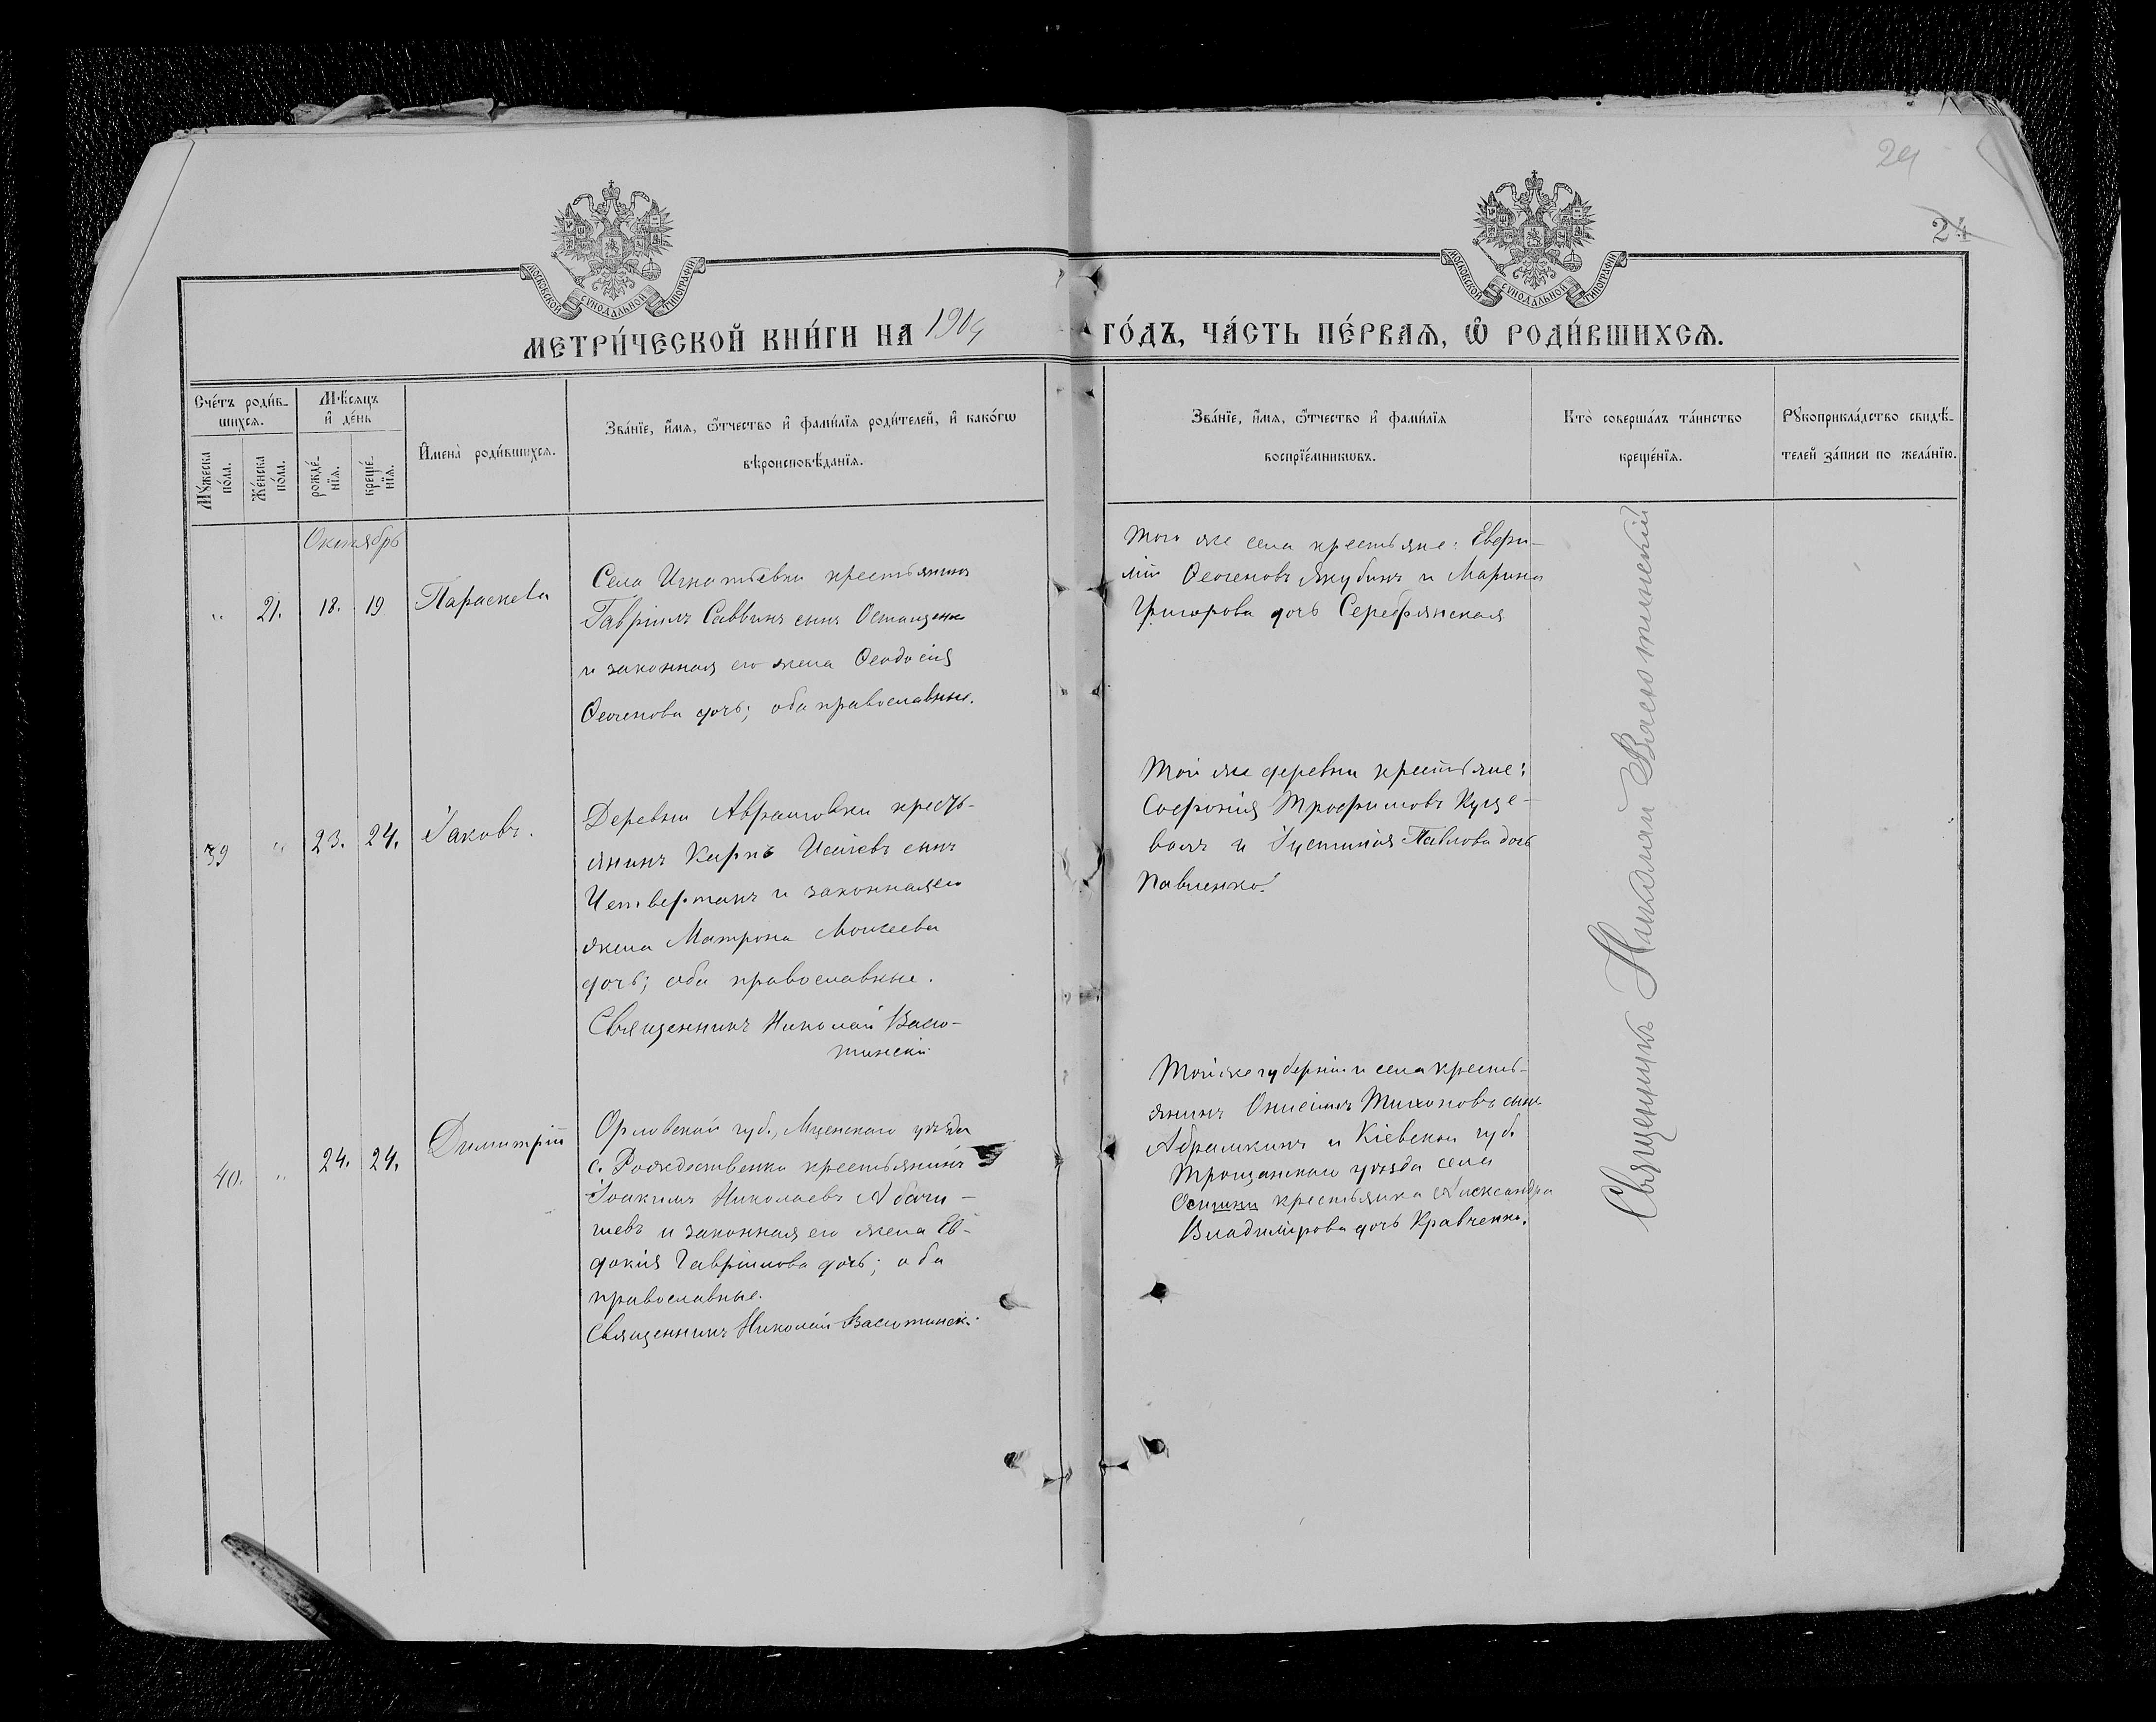 24
24
МОСКОВСКОЙ СѴНОДАЛЬНОЙ ТИПОГРАФІИ
МОСКОВСКОЙ СѴНОДАЛЬНОЙ ТИПОГРАФІИ
МЕТРИ́ЧЕСКОЙ КНИ́ГИ НА 1904 ГО́ДЪ, ЧА́СТЬ ПЕ́РВАѦ, Ѡ҆ РОДИ́ВШИХСѦ.
Сче́тъ роди́в-
шихсѧ.
Мꙋ́жеска
по́ла.
Же́нска
по́ла.
Мѣ́сѧцъ
и҆ де́нь
рожде́-
нїѧ.
креще́-
нїѧ.
И҆мена̀ роди́вшихсѧ.
Зва́нїе, и҆́мѧ, ѻ҆́тчество и҆ фами́лїѧ роди́телей, и҆ како́гѡ
вѣроисповѣ́данїѧ.
Зва́нїе, и҆́мѧ, ѻ҆́тчество и҆ фами́лїѧ
воспрїе́мникѡвъ.
Кто̀ соверша́лъ та́инство
креще́нїѧ.
Рꙋкоприкла́дство свидѣ́-
телей за́писи по жела́нїю.
Октябрь
" 21. 18. 19 Параскева
Села Игнатьевки крестьянинъ
Гавріилъ Саввинъ сынъ Остащенко
и законная его жена Ѳеодосія
дочь; оба православные.
Того же села крестьяне:
Якубинъ и Марина
Григорова дочь Серебрянская
39 " 23. 24. Іаковъ.
Деревни Аврамовки кресть-
янинъ Карпъ сынъ
и законная его
жена Матрона Моисеева
дочь; оба православные.
Священникъ Николай Васю-
тинскій
Той же деревни крестьяне:
Софронія Трофимовъ Куце-
валъ и Іустинія Павлова дочь
Павленко.
40. " 24. 24. Димитрій
Орловской губ., Мценскаго уѣзда
с. Рождественки крестьянинъ
Іоакимъ Николаевъ
и законная его жена Ев-
докія Гавріилова дочь; оба
православные.
Священникъ Николай Васютинск.
Той же губерніи и села кресть-
янинъ Онисимъ Тихоновъ сынъ
Абрамкинъ и Кіевской губ.
уѣзда села
крестьянка Александра
Владимірова дочь Кравченко.
Священникъ Николай Васютинскій